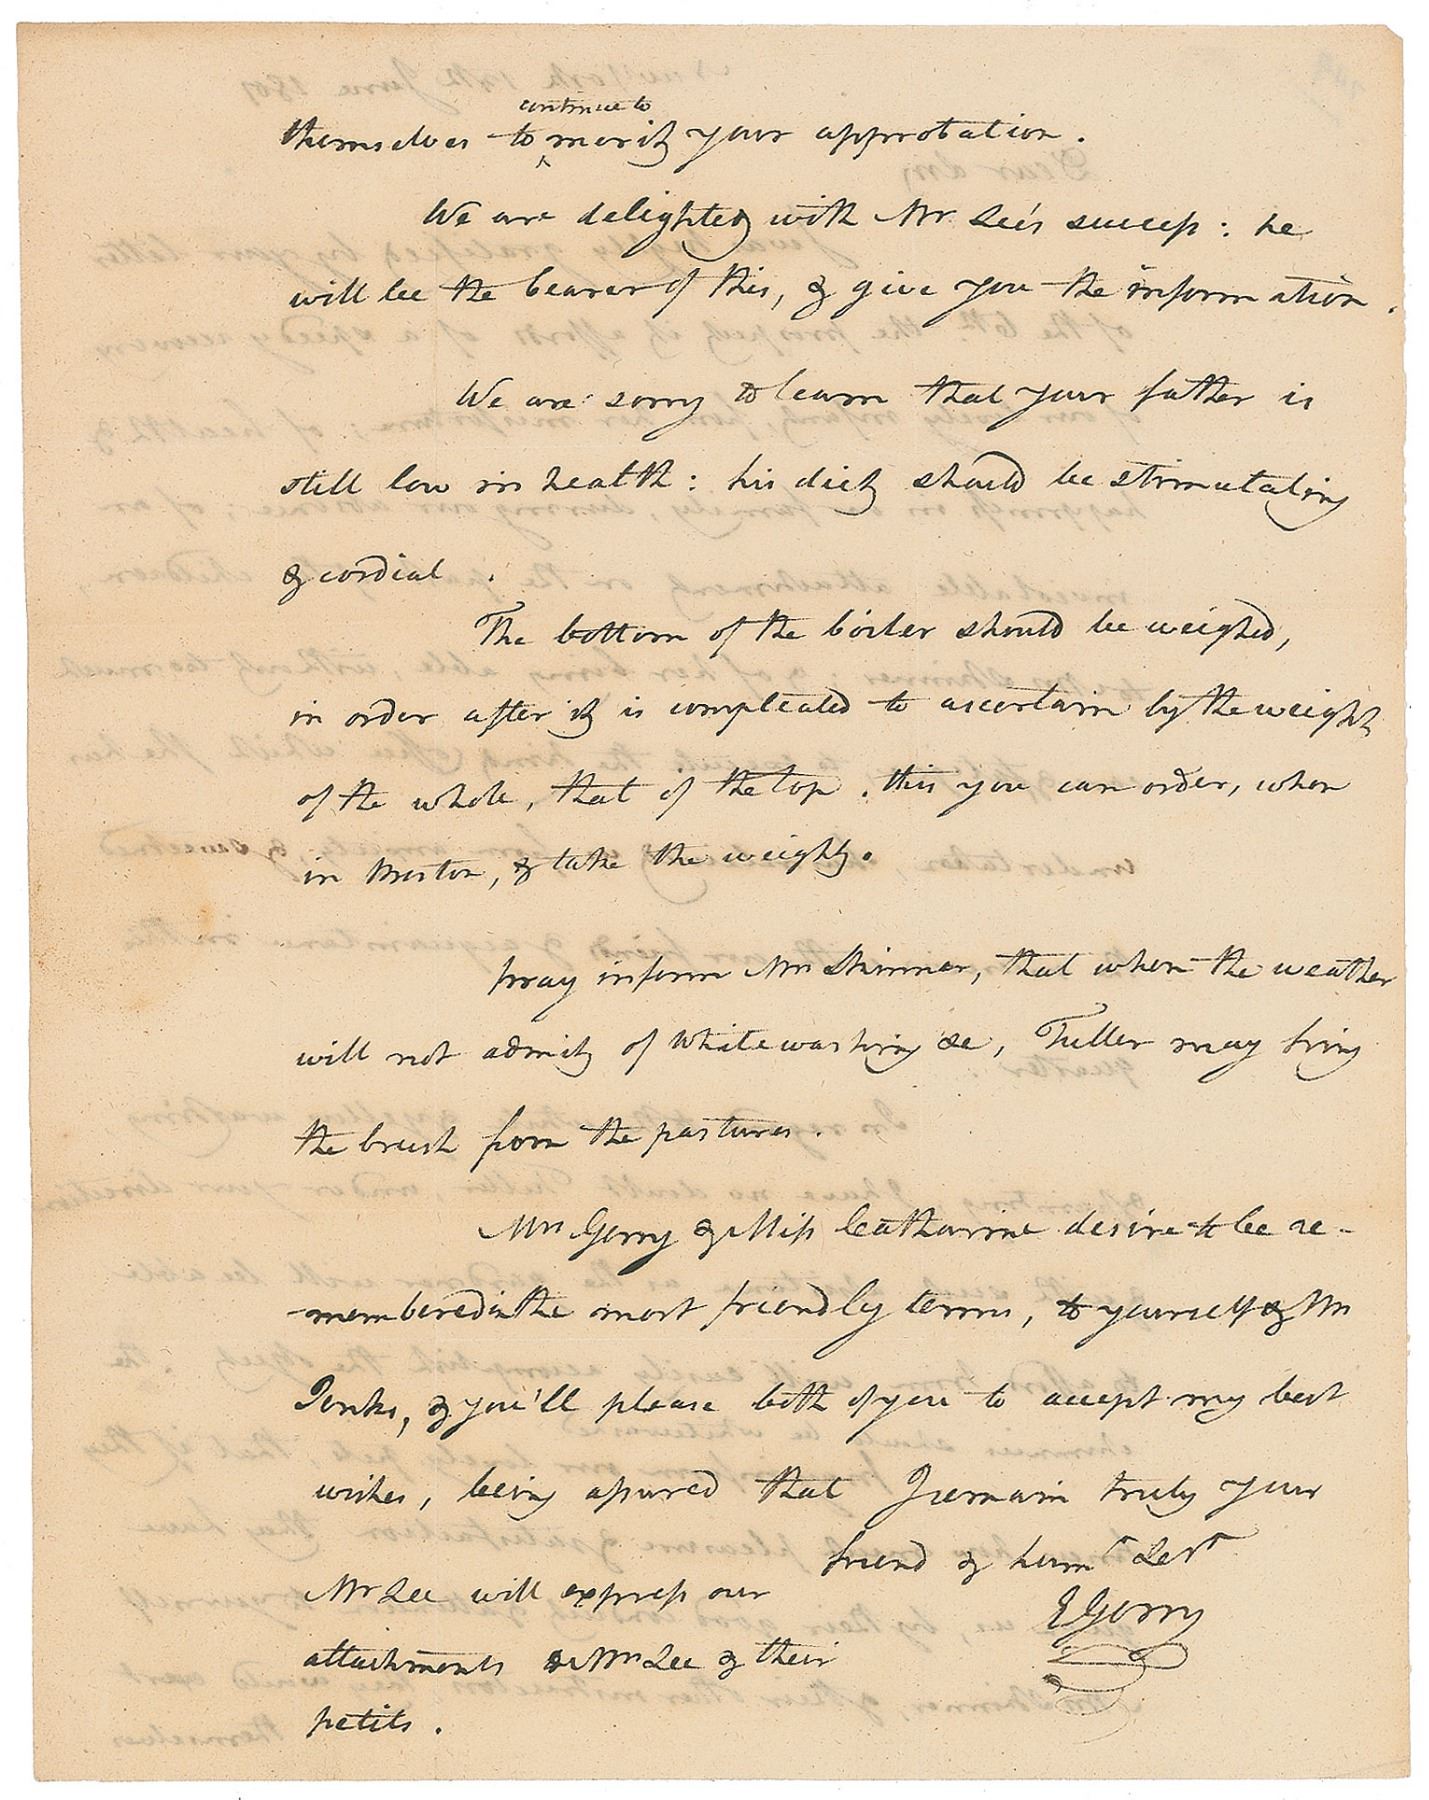 continue to
themselves to ‸ merit your approbation.
We are delighted with Mr Lee's success: he
will be the bearer of this, & give you the information.
We are sorry to learn that your father is
still low in health: his diet should be stimulating
& cordial.
The bottom of the boiler should be weighed,
in order after it is compleated to ascertain by the weight
of the whole, that of the top. this you can order, when
in Boston, & take the weight.
pray inform Mrs Skinner, that when the weather
will not admit of Whitewashing &c, Fuller may bring
the brush from the pastures.
Mrs Gerry & Miss Catharine desire to be re-
-membered in the most friendly terms, to yourself & Mrs
Jenks, & you'll please both of you to accept my best
wishes, being assured that I remain truly your
friend & humr Servt
E Gerry
Mr Lee will express our
attachments to Mrs Lee & their
petits.